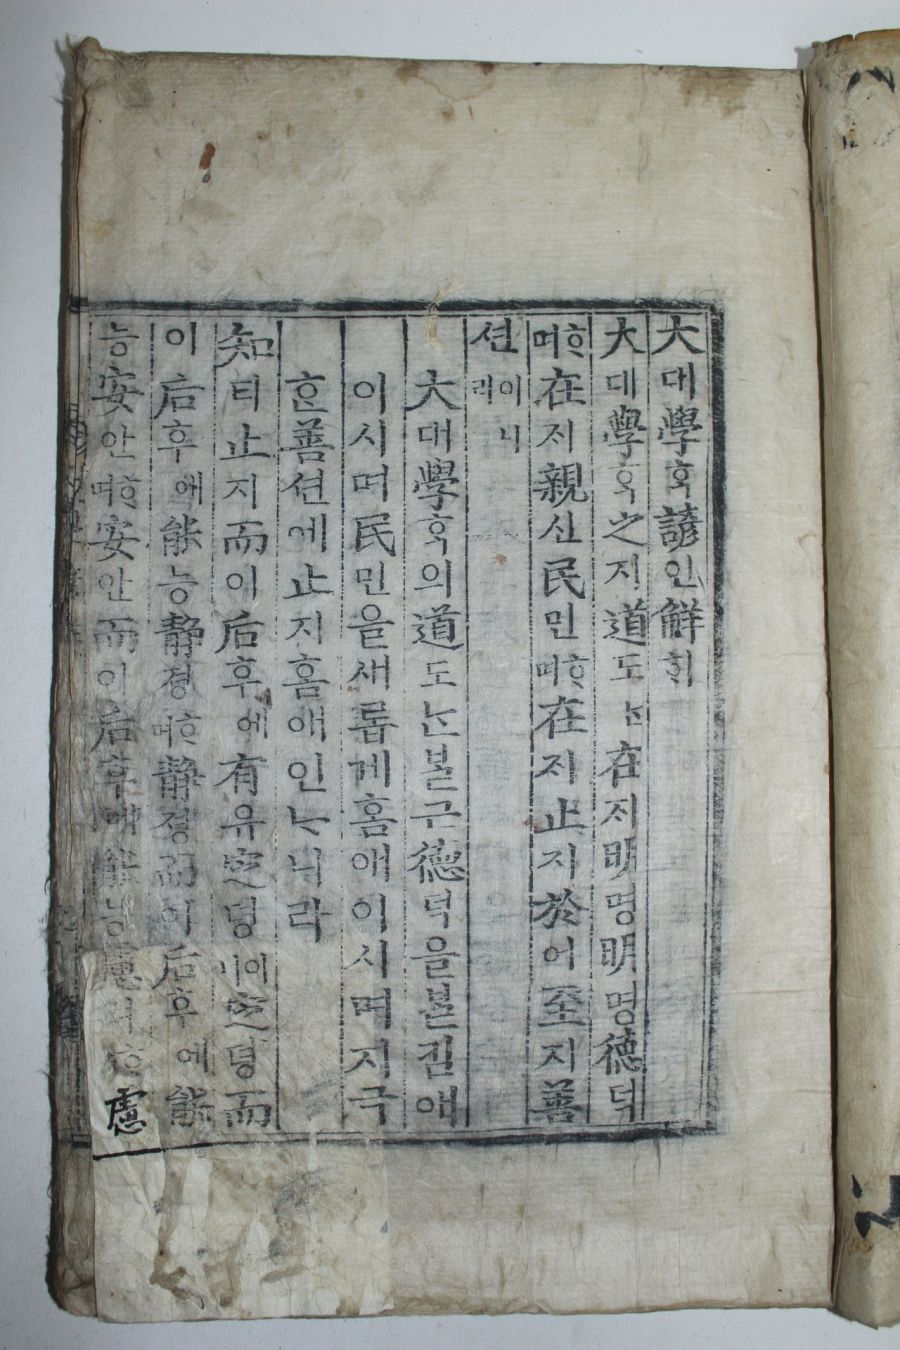 大대學ᄒᆞᆨ諺언解ᄒᆡ
大대學ᄒᆞᆨ之지道도ᄂᆞᆫ在ᄌᆡ明명明명德덕
ᄒᆞ며在ᄌᆡ親신民민ᄒᆞ며在ᄌᆡ止지於어至지善
션이니라
大대學ᄒᆞᆨ의道도ᄂᆞᆫᄇᆞᆯ근德덕을ᄇᆞᆯ킴애
이시며民민을새롭게홈애이시며지극
ᄒᆞᆫ善션에止지홈애인ᄂᆞ니라
知티止지而이后후에有유定뎡이니定뎡而
이后후에能능靜졍ᄒᆞ며靜졍而이后후에能
능安안ᄒᆞ며安안而이后후에能능慮
慮